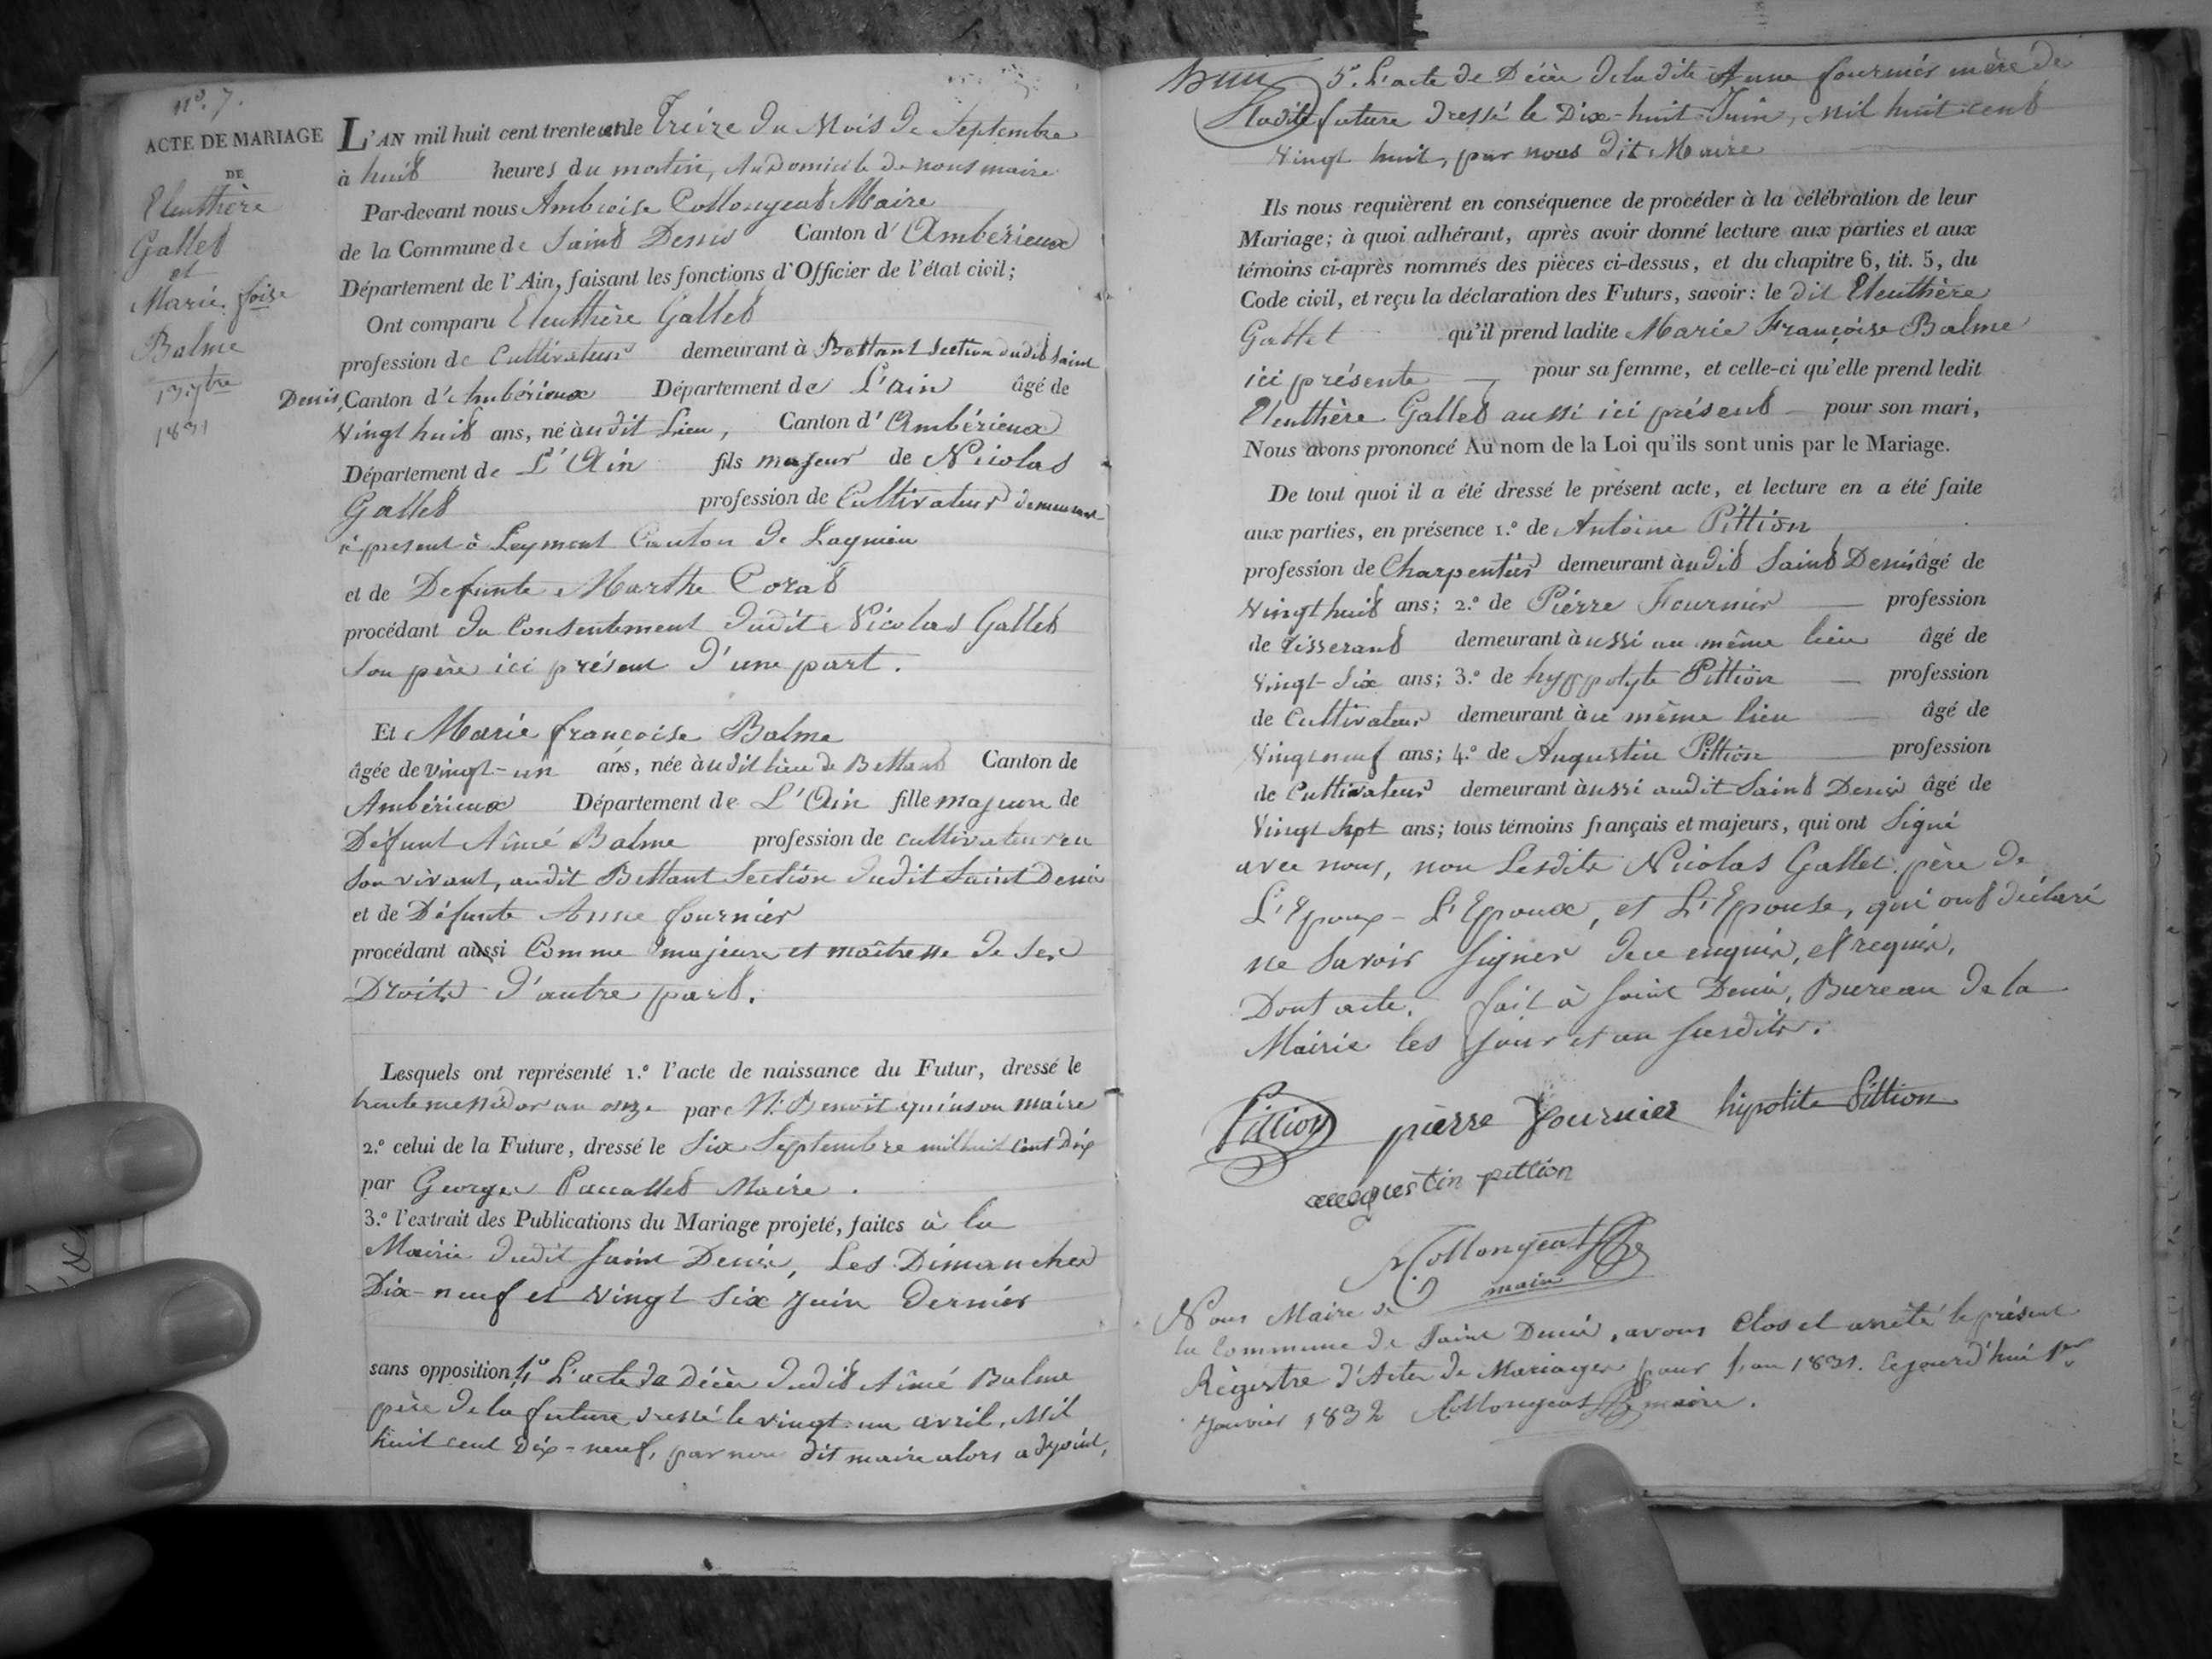 n.° 7.
ACTE DE MARIAGE
DE
Eleuthère
Gallet
et
Marie. foise
Balme
13. 7bre
1831
L'AN mil huit cent trente et un le Treize du Mois de Septembre
à huit heures du matin, Au Domicile de nous maire
Par-devant nous Ambroise Collongeat Maire
de la Commune de Saint Denis Canton d'Ambérieux
Département de l'Ain, faisant les fonctions d'Officier de l'état civil;
Ont comparu Eleuthère Gallet
profession de Cultivateur demeurant à Bettant Section dudit Saint
Denis, Canton d'Ambérieux Département de L'ain âgé de
Vingt huit ans, né audit Lieu, Canton d'Ambérieux
Département de L'Ain fils majeur de Nicolas
Gallet profession de Cultivateur demeurant
à present à Leyment Canton de Lagnieu
et de Defunte Marthe Corat
procédant du Consentement dudit Nicolas Gallet
son père ici présent d'une part.
Et Marie françoise Balme
âgée de vingt-un ans, née audit lieu de Bettant Canton de
Ambérieux Département de L'Ain fille majeure de
Défunt Aimé Balme profession de cultivateur en
son vivant, audit Bettant Section dudit Saint Denis
et de Défunte Anne fournier
procédant aussi Comme majeure et maîtresse de ses
Droits d'autre part.
Lesquels ont représenté 1.° l'acte de naissance du Futur, dressé le
trente messidor an onze par M. Benoit quinson maire
2.° celui de la Future, dressé le Six Septembre mil huit cent Dix
par Georges Paccallet Maire.
3.° l'extrait des Publications du Mariage projeté, faites à la
Mairie dudit Saint Denis, Les Dimanches
Dix-neuf et Vingt Six Juin Dernier
sans opposition 4° L'acte de Décès dudit Aimé Balme
père de la future dressé le vingt-un avril, Mil
huit cent Dix-neuf, par nous dit maire alors adjoint,
5.° L'acte de Décès de la dite Anne fournier mère de
Ladite future dressé le Dix-huit Juin, Mil huit cent
Vingt huit, par nous dit Maire
Ils nous requièrent en conséquence de procéder à la célébration de leur
Mariage; à quoi adhérant, après avoir donné lecture aux parties et aux
témoins ci-après nommés des pièces ci-dessus, et du chapitre 6, tit. 5, du
Code civil, et reçu la déclaration des Futurs, savoir: le dit Eleuthère
Gallet qu'il prend ladite Marie Françoise Balme
ici présente pour sa femme, et celle-ci qu'elle prend ledit
Eleuthère Gallet aussi ici présent pour son mari,
Nous avons prononcé Au nom de la Loi qu'ils sont unis par le Mariage.
De tout quoi il a été dressé le présent acte, et lecture en a été faite
aux parties, en présence 1.° de Antoine Pittion
profession de Charpentier demeurant audit Saint Denis âgé de
Vingt huit ans; 2.° de Pierre Fournier profession
de Tisserand demeurant aussi au même lieu âgé de
Vingt-Six ans; 3.° de hyppolyte Pittion profession
de Cultivateur demeurant au même lieu âgé de
Vingt neuf ans; 4.° de Augustin Pittion profession
de Cultivateur demeurant aussi audit Saint Denis âgé de
Vingt sept ans; tous témoins français et majeurs, qui ont Signé
avec nous, non Lesdits Nicolas Gallet père de
L'Epoux - L'Epoux, et L'Epouse, qui ont déclaré
ne savoir signer de ce enquis, et requis,
Dont acte. fait à Saint Denis, Bureau de la
Mairie les jour et an susdits.
Pittion pierre Fournier hipolite Pittion
auguestin pittion
A. Collongeat
maire
Nous Maire de
la Commune de Saint Denis, avons Clos et arrêté le présent
Régistre d'Actes de Mariages pour l'an 1831. Cejourd'hui 1er
Janvier 1832 A. Collongeat maire.